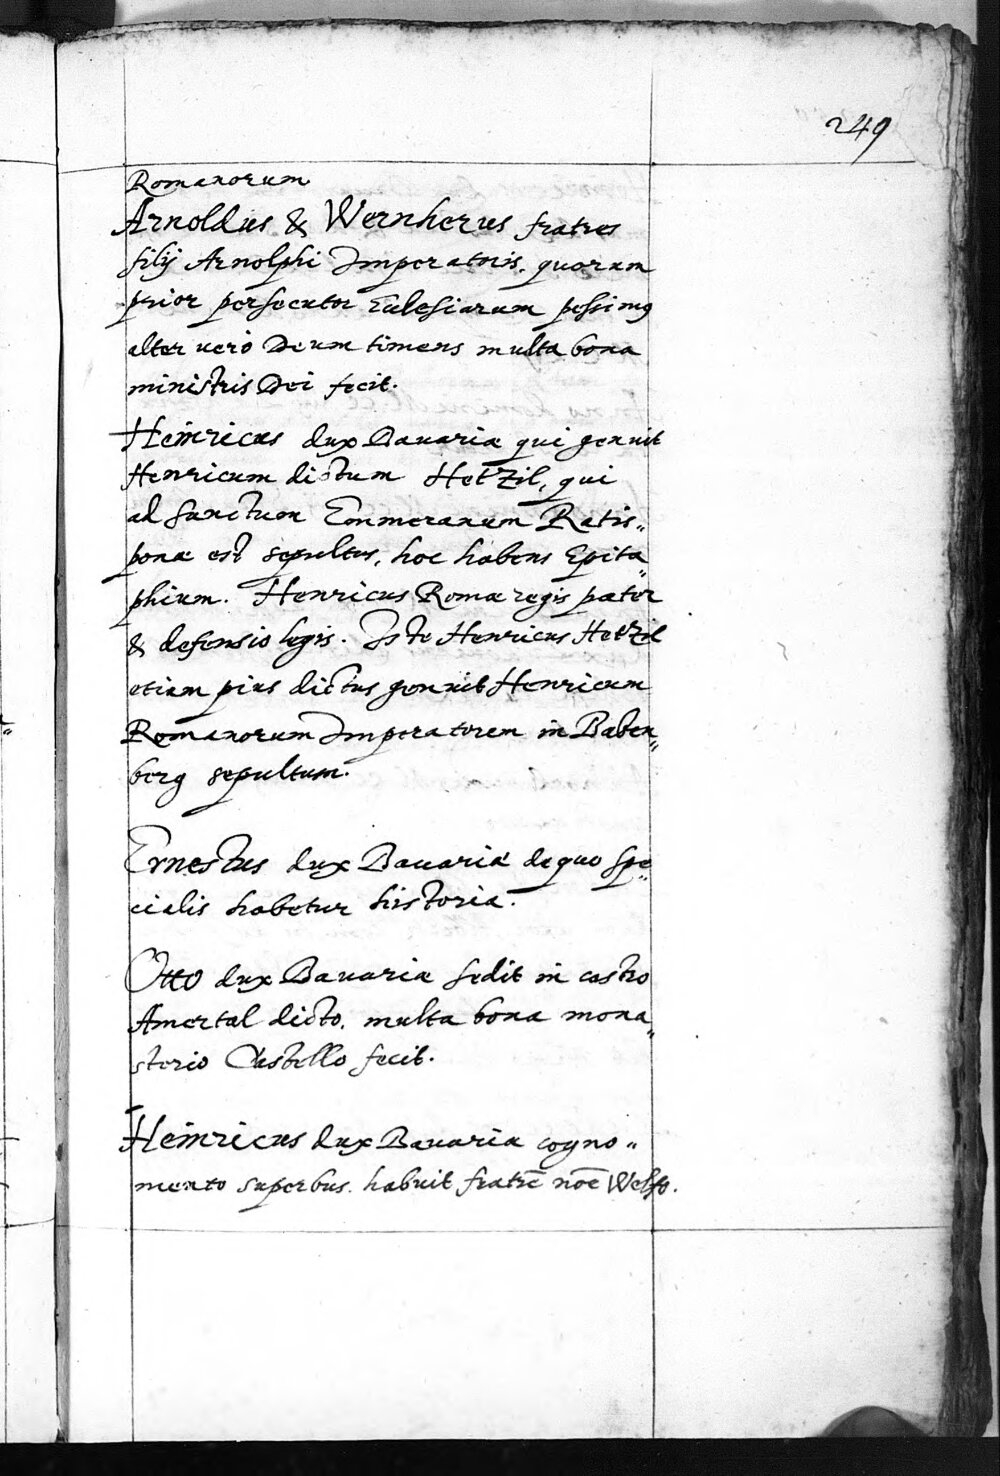 249
Romanorum
Arnoldus & Wernherus fratres
filij Arnolphi Imperatoris, quorum
prior persecutor Eclesiarum pessimꝯ
alter uero Deum timens multa bona
ministris Dei fecit.
Heinricus dux Bauariæ qui genuit
Henricum dictum Hetzil, qui
ad Sanctum Emmeranum Ratis„
ponæ est sepultus, hoc habens Epita„
phium. Henricus Romæ regis pater
& defensio legis. Iste Henricus Hetzil
etiam pius dictus genuit Henricum
Romanorum Imperatorem in Baben„
berg sepultum.
Ernestus dux Bauariæ de quo spe„
cialis habetur historia.
Otto dux Bauariæ sedit in castro
Amertal dicto, multa bona mona„
sterio Castello fecit.
Heinricus dux Bauariæ cogno„
mento superbus. habuit fratrē noē Welfo.